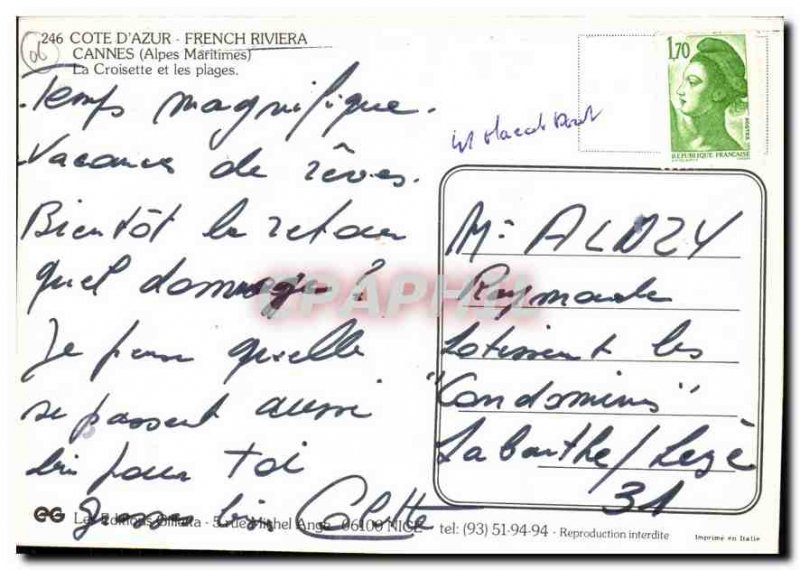 246 COTE D'AZUR - FRENCH RIVIERA
CANNES (Alpes Maritimes)
La Croisette et les plages.
Temps magnifique.
Vacances de rêves.
Bientôt le retour
quel dommage!
Je pense qu'elle
se passent aussi
bien pour toi
grosses bises Colette
1,70
POSTES
REPUBLIQUE FRANÇAISE
M: ALNZY
Raymonde
Lotissement les
"Condomines"
Labarthe/Lèze
31
CPAPHIL
Les Editions Gilletta - 5, rue Michel Ange - 06100 NICE - tel: (93) 51-94-94 - Reproduction interdite
Imprimé en Italie